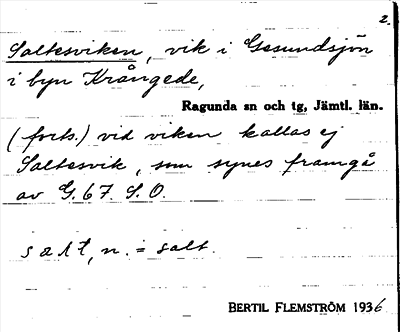 2.
Saltesviken, vik i Gesundsjön
i byn Krångede,
Ragunda sn och tg, Jämtl. län.
(forts.) vid viken kallas ej
Saltesvik, som synes framgå
av G. 67. S. O.
salt, n. = salt.
BERTIL FLEMSTRÖM 1936